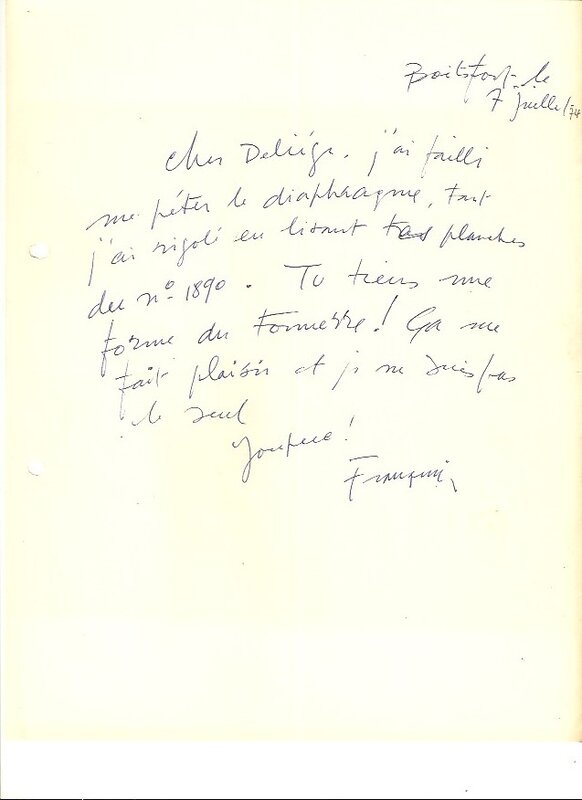 Boitsfort le
7 juillet 74
Cher Deliége. j'ai failli
me péter le diaphragme, tant
j'ai rigolé en lisant tes planches
du nº 1890. Tu tiens une
forme du tonnerre! Ça me
fait plaisir et je ne suis pas
le seul
Youpee!
Franquin